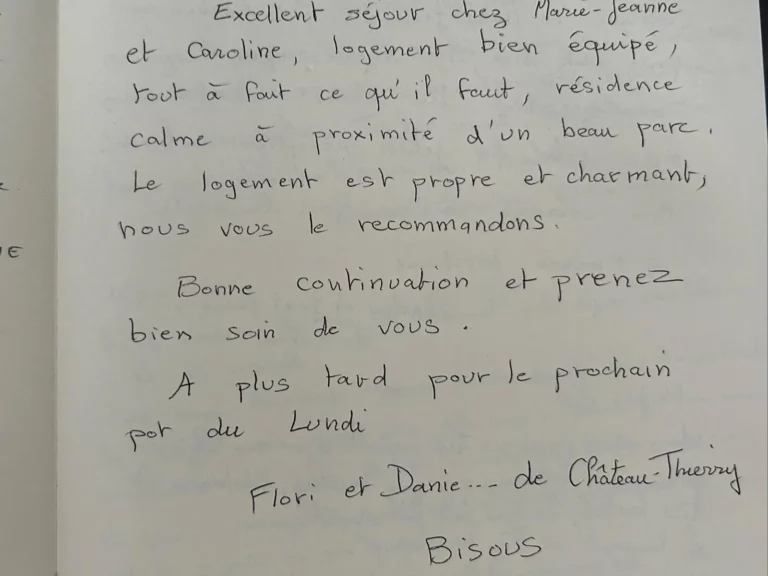 Excellent séjour chez Marie-Jeanne
et Caroline, logement bien équipé,
tout à fait ce qu'il faut, résidence
calme à proximité d'un beau parc.
Le logement est propre et charmant,
nous vous le recommandons.
Bonne continuation et prenez
bien soin de vous.
A plus tard pour le prochain
pot du Lundi
Flori et Danie... de Château-Thierry
Bisous